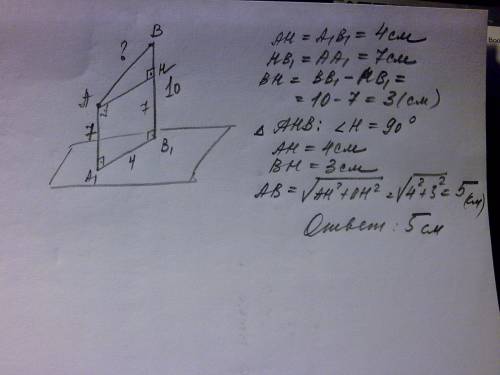 ?
B
H
10
A
7
7
B₁
A₁
4
AH = A₁B₁ = 4см
HB₁ = AA₁ = 7см
BH = BB₁ - HB₁ =
= 10 - 7 = 3 (см)
△ AHB: ∠H = 90°
AH = 4см
BH = 3см
AB = √AH²+BH² = √4²+3² = 5 (см)
Ответ: 5см